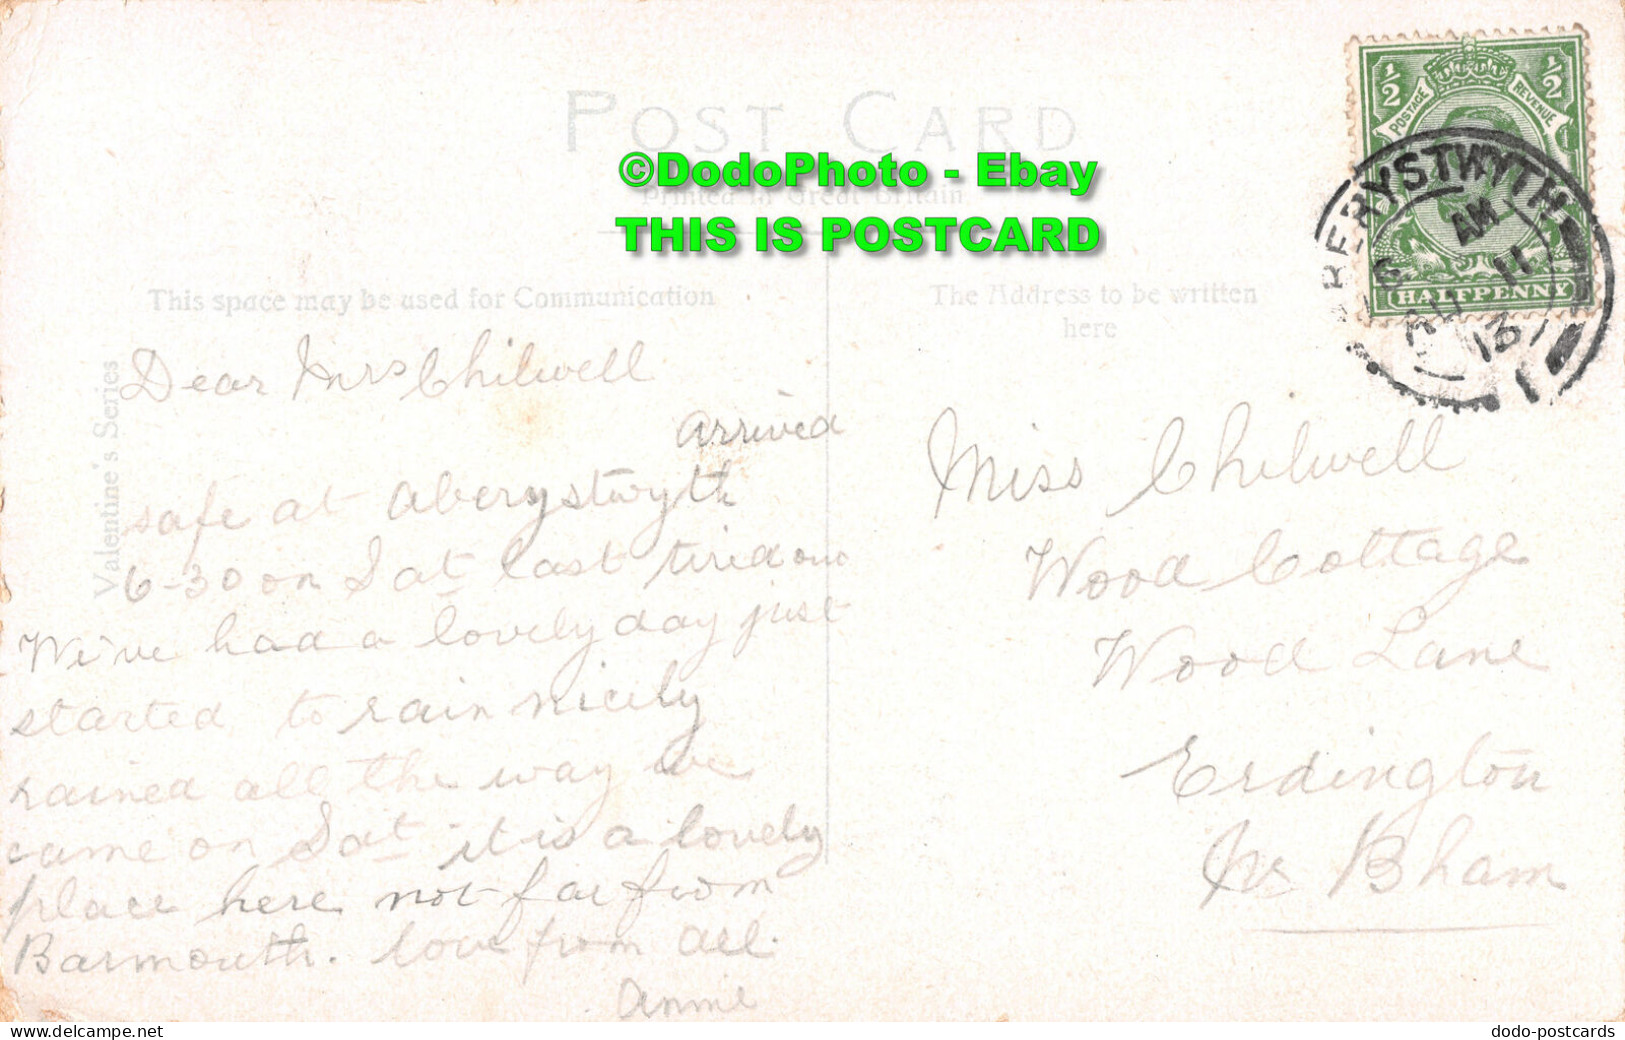 POST CARD
©DodoPhoto - Ebay
Printed in Great Britain
THIS IS POSTCARD
This space may be used for Communication
The Address to be written
here
Valentine's Series
½ ½
POSTAGE REVENUE
HALFPENNY
ABERYSTWYTH
AM
11
13
Dear Mrs Chilwell
arrived
safe at aberystwyth
6-30 on Sat last tired
We've had a lovely day just
started to rain nicely
rained all the way we
came on Sat it is a lovely
place here not far from
Barmouth. love from all.
annie
Miss Chilwell
Wood Cottage
Wood Lane
Erdington
Nr Bham
dodo-postcards
www.delcampe.net